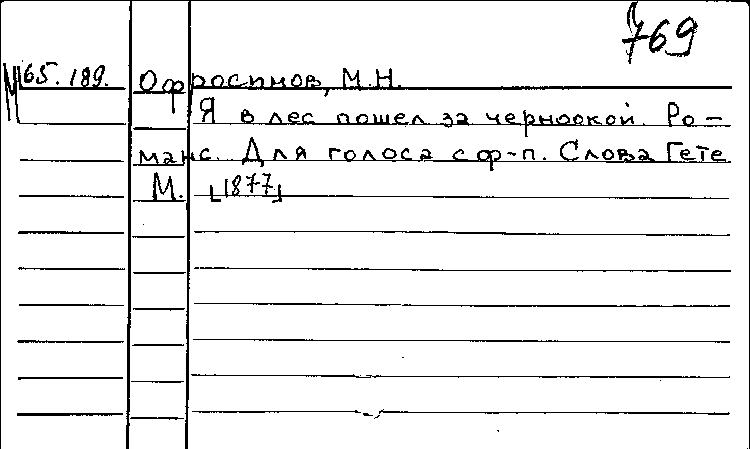 769
М65.189. Офросимов, М.Н.
Я в лес пошел за черноокой. Ро-
манс. Для голоса с ф-п. Слова Гете
М. [1877]